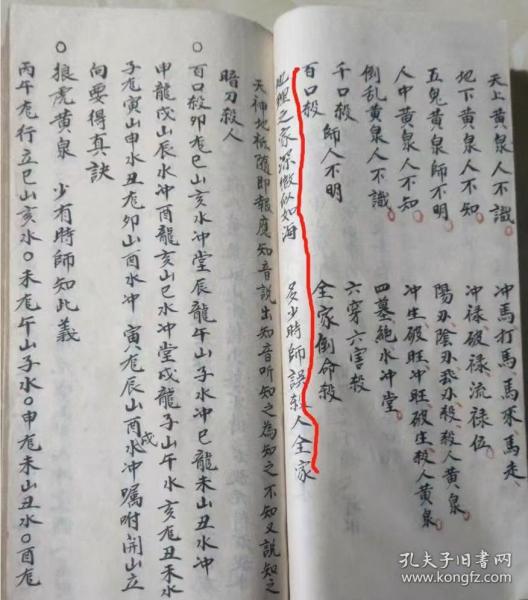 天上黄泉人不識 冲馬打馬馬來馬走
地下黄泉人不知 冲禄破禄流禄位
五鬼黄泉師不明 陽水陰水我水殺殺人黄泉
人中黄泉人不知 冲生破旺冲旺破庄殺人黄泉
倒乱黄泉人不識 四墓絶水冲堂
千口殺師人不明 六穿六害殺
百口殺 全家倒命殺
地理之家深微似如海 多少時師誤殺人全家
天神地祇随即報應知音說出知音听知之為知之不知又說知之
暗刀殺人
○百口殺卯龙巳山亥水冲堂辰龍午山子水冲巳龍未山丑水冲
申龍戌山辰水冲酉龍亥山巳水冲堂戌龍子山午水亥龙丑未水
子龙寅山申水丑龙卯山酉水冲寅龙辰山戌水冲嘱咐開山立
向要得真訣
○狼虎黄泉 少有時師知此義
丙午龙行立巳山亥水○未龙午山子水○申龙未山丑水○酉龙
孔夫子旧書网
www.kongfz.com